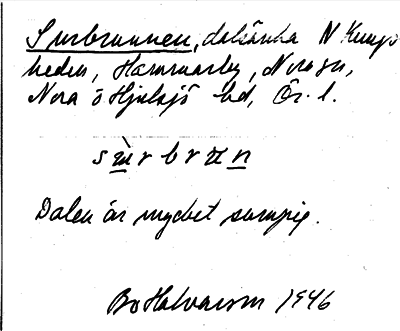 Surbrunnen, dalsänka N Kungs-
heden, Hammarby, Nora sn,
Nora o Hjulsjö bd, Ör. l.
Dalen är mycket sumpig.
Bo Halvarson 1946